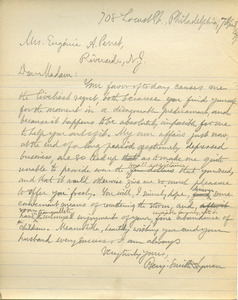 708 Locust St., Philadelphia,
Mrs. Eugénie A. Perret,
Riverside, N.J.
Dear Madam:
Your favor of to-day causes me
the liveliest regret both because you find yourself
for the moment in a disagreeable predicament, and
because it happens to be absolutely impossible for me
to help you out of it. My own affairs just now,
at the end of a long period of extremely depressed
business, are so tied up that as to make me quite
unable to provide even the that you need,
and that it would otherwise give me so much pleasure
to offer you freely. You will, I sincerely hope, find some
convenient means of weathering the storm, and, after all,
enjoyment of your fine abundance of
children. Meanwhile, heartily wishing you and your
husband every success, I am always
Very truly yours,
Benj. Smith Lyman